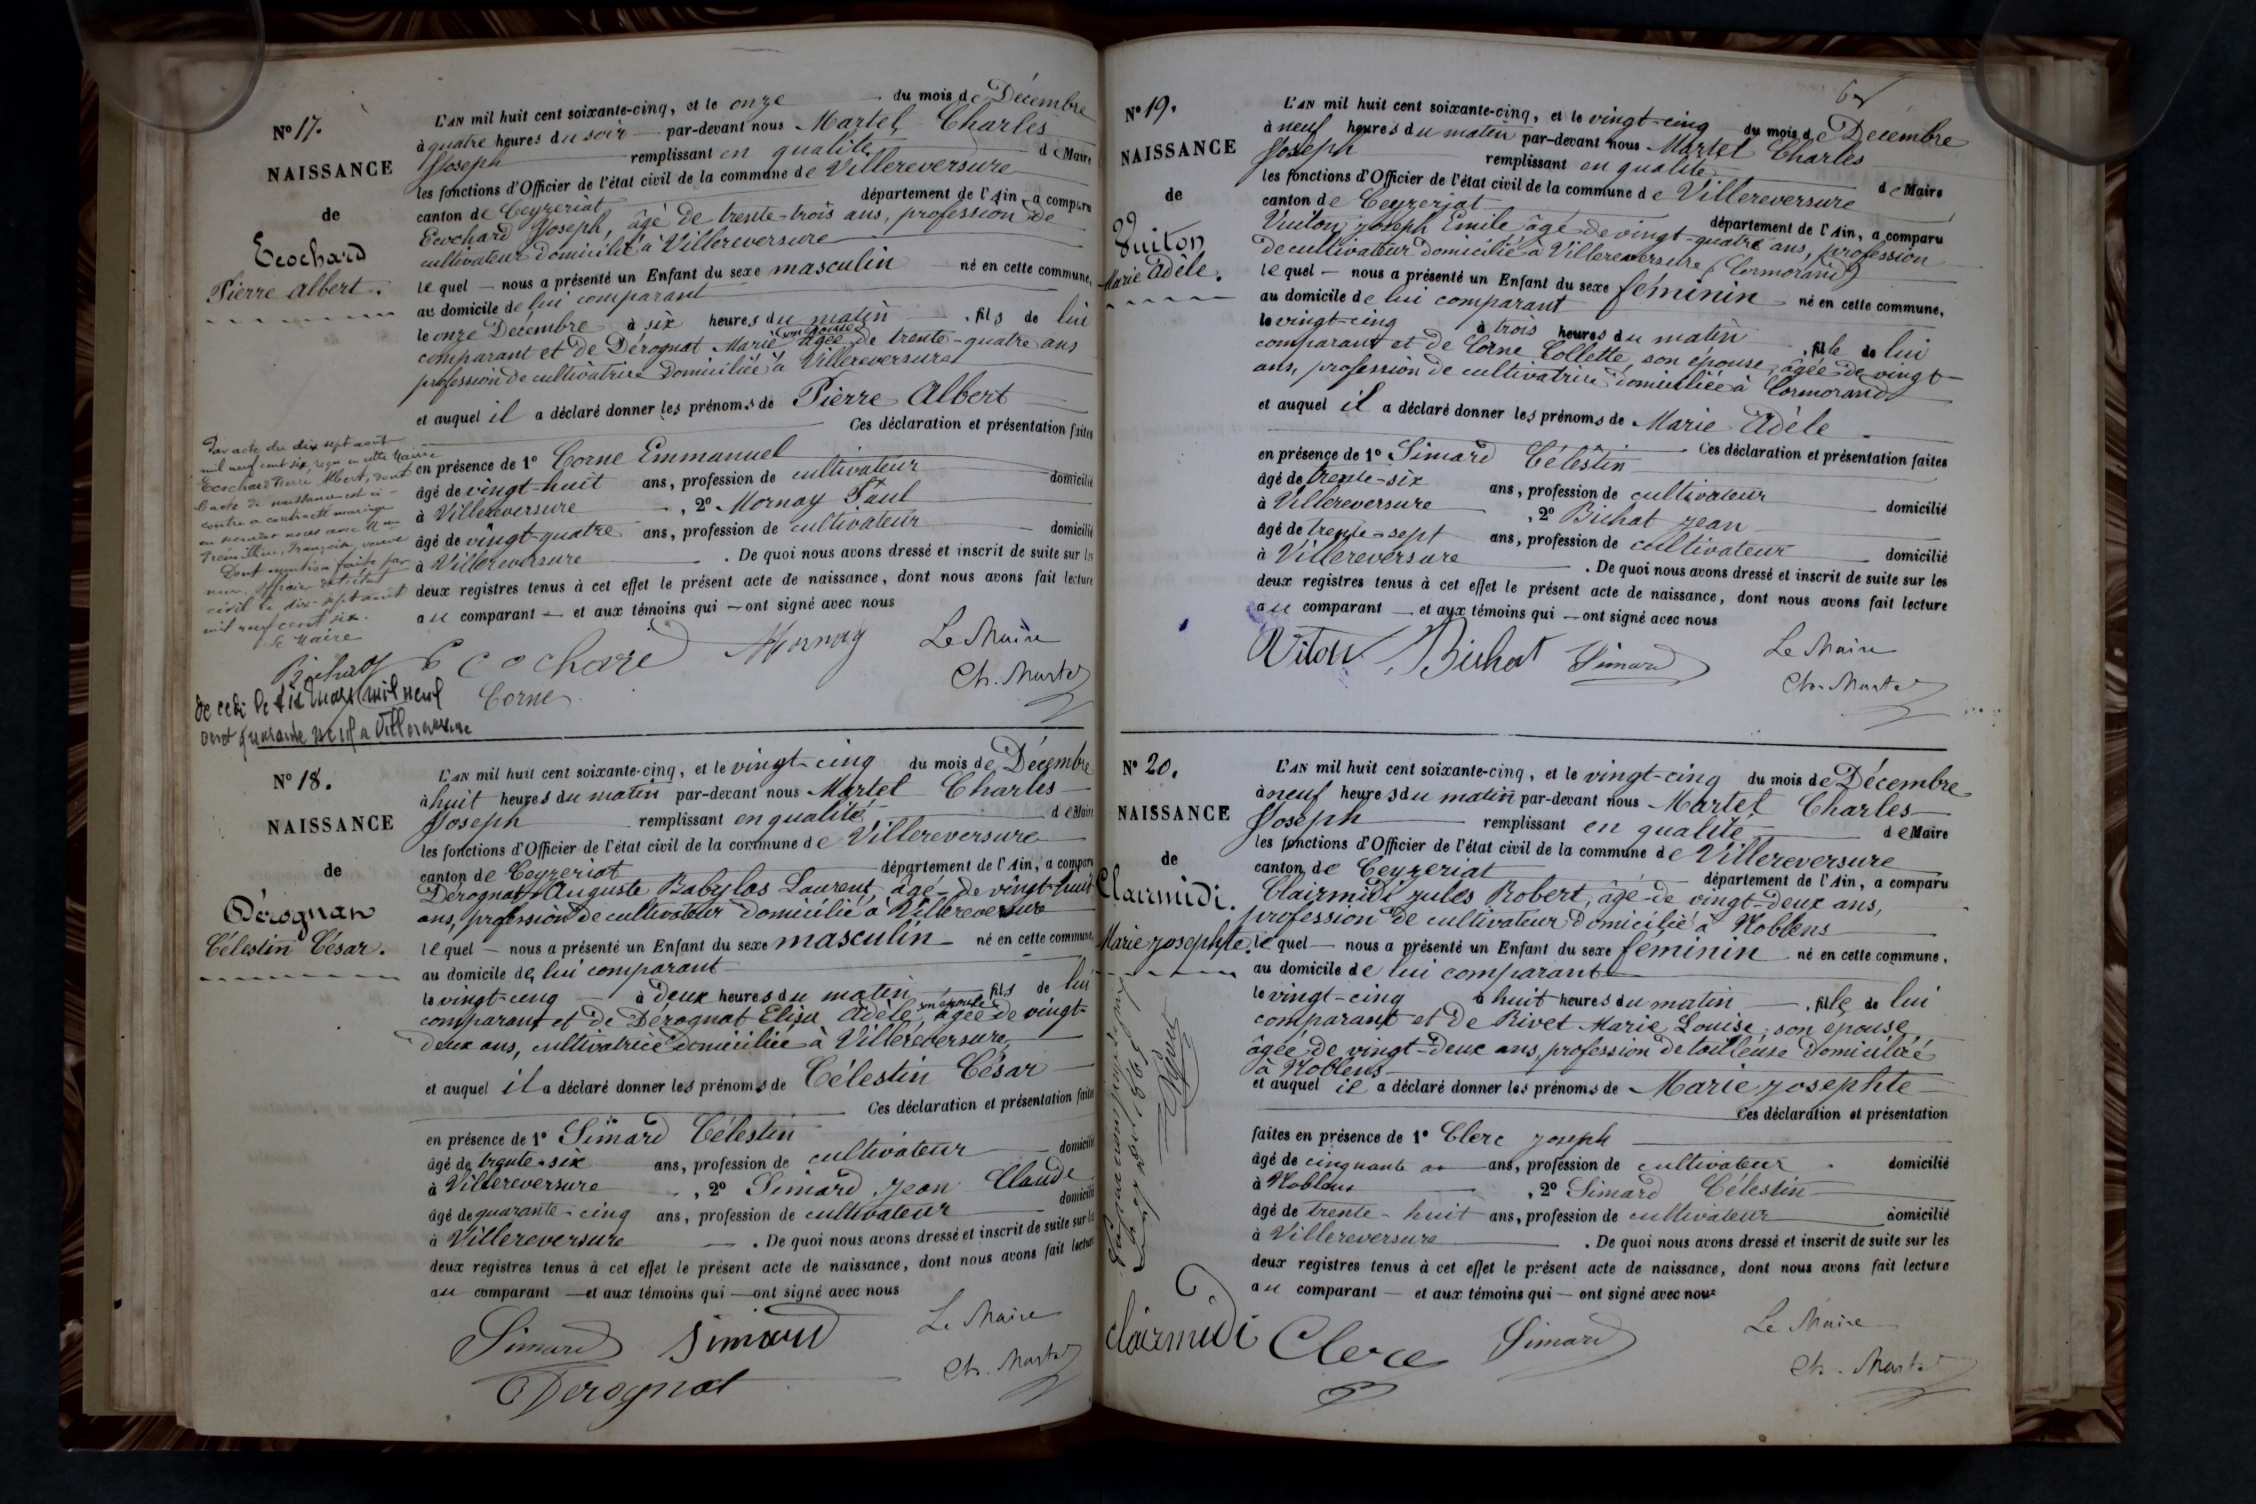 N° 17.
NAISSANCE
de
Ecochard
Pierre Albert.
L'AN mil huit cent soixante-cinq, et le onze du mois de Décembre
à quatre heures du soir par-devant nous Martel Charles
Joseph remplissant en qualité de Maire
les fonctions d'Officier de l'état civil de la commune de Villereversure
canton de Ceyzeriat département de l'Ain, a comparu
Ecochard Joseph, âgé de trente-trois ans, profession de
cultivateur domicilié à Villereversure
lequel nous a présenté un Enfant du sexe masculin né en cette commune,
au domicile de lui comparant
le onze Décembre à six heures du matin, fils de lui
comparant et de Dérognat Marie son épouse Agée de trente-quatre ans
profession de cultivatrice domiciliée à Villereversure
et auquel il a déclaré donner les prénoms de Pierre Albert
Ces déclaration et présentation faites
en présence de 1° Corne Emmanuel
âgé de vingt-huit ans, profession de cultivateur domicilié
à Villereversure, 2° Mornay Paul
âgé de vingt-quatre ans, profession de cultivateur domicilié
à Villereversure. De quoi nous avons dressé et inscrit de suite sur les
deux registres tenus à cet effet le présent acte de naissance, dont nous avons fait lecture
au comparant et aux témoins qui ont signé avec nous
Ecochard Mornay Le Maire
Corne Ch. Martel
Par acte du dix sept août
mil neuf cent six, reçu en cette Mairie
Ecochard Pierre Albert, dont
l'acte de naissance est ci-
contre a contracté mariage
Françoise, veuve
Dont mention faite par
nous, Officier de l'état
civil le dix-sept août
mil neuf cent six.
Le Maire
Bichat
Décédé le dix mars mil neuf
cent quarante neuf à Villereversure
N° 18.
NAISSANCE
de
Dérognan
Célestin César.
L'AN mil huit cent soixante-cinq, et le vingt-cinq du mois de Décembre
à huit heures du matin par-devant nous Martel Charles
Joseph remplissant en qualité de Maire
les fonctions d'Officier de l'état civil de la commune de Villereversure
canton de Ceyzeriat département de l'Ain, a comparu
Dérognat Auguste Babylas Laurent, âgé de vingt-huit
ans, profession de cultivateur domicilié à Villereversure
lequel nous a présenté un Enfant du sexe masculin né en cette commune,
au domicile de lui comparant
le vingt-cinq à deux heures du matin fils de lui
comparant et de Dérognat Elisa Adèle son épouse, agée de vingt-
deux ans, cultivatrice domiciliée à Villereversure,
et auquel il a déclaré donner les prénoms de Célestin César
Ces déclaration et présentation faites
en présence de 1° Simard Célestin
âgé de trente-six ans, profession de cultivateur domicilié
à Villereversure, 2° Simard Jean Claude
âgé de quarante-cinq ans, profession de cultivateur domicilié
à Villereversure. De quoi nous avons dressé et inscrit de suite sur les
deux registres tenus à cet effet le présent acte de naissance, dont nous avons fait lecture
au comparant et aux témoins qui ont signé avec nous
Simard Simard Le Maire
Derognat Ch. Martel
N° 19.
NAISSANCE
de
Vuiton
Marie Adèle.
L'AN mil huit cent soixante-cinq, et le vingt-cinq du mois de Décembre
à neuf heures du matin par-devant nous Martel Charles
Joseph remplissant en qualité de Maire
les fonctions d'Officier de l'état civil de la commune de Villereversure
canton de Ceyzeriat département de l'Ain, a comparu
Vuiton Joseph Emile âgé de vingt-quatre ans, profession
de cultivateur domicilié à Villereversure (Cormorand)
lequel nous a présenté un Enfant du sexe féminin né en cette commune,
au domicile de lui comparant
le vingt-cinq à trois heures du matin, fille de lui
comparant et de Corne Collette, son épouse, âgée de vingt
ans, profession de cultivatrice domiciliée à Cormorand
et auquel il a déclaré donner les prénoms de Marie Adèle
Ces déclaration et présentation faites
en présence de 1° Simard Célestin
âgé de trente-six ans, profession de cultivateur domicilié
à Villereversure, 2° Bichat Jean
âgé de trente-sept ans, profession de cultivateur domicilié
à Villereversure. De quoi nous avons dressé et inscrit de suite sur les
deux registres tenus à cet effet le présent acte de naissance, dont nous avons fait lecture
au comparant et aux témoins qui ont signé avec nous
Vitou Bichat Simard Le Maire
Ch. Martel
N° 20.
NAISSANCE
de
Clairmidi.
Marie Josephte.
L'AN mil huit cent soixante-cinq, et le vingt-cinq du mois de Décembre
à neuf heures du matin par-devant nous Martel Charles
Joseph remplissant en qualité de Maire
les fonctions d'Officier de l'état civil de la commune de Villereversure
canton de Ceyzeriat département de l'Ain, a comparu
Clairmidi Jules Robert, âgé de vingt-deux ans,
profession de cultivateur domicilié à Noblens
lequel nous a présenté un Enfant du sexe féminin né en cette commune,
au domicile de lui comparant
le vingt-cinq à huit heures du matin, fille de lui
comparant et de Rivet Marie Louise, son épouse
âgée de vingt-deux ans, profession de tailleuse domiciliée
à Noblens
et auquel il a déclaré donner les prénoms de Marie Josephte
Ces déclaration et présentation
faites en présence de 1° Clerc Joseph
âgé de cinquante ans, profession de cultivateur domicilié
à Noblens, 2° Simard Célestin
âgé de trente-huit ans, profession de cultivateur domicilié
à Villereversure. De quoi nous avons dressé et inscrit de suite sur les
deux registres tenus à cet effet le présent acte de naissance, dont nous avons fait lecture
au comparant et aux témoins qui ont signé avec nous
Clairmidi Clerc Simard Le Maire
Ch. Martel